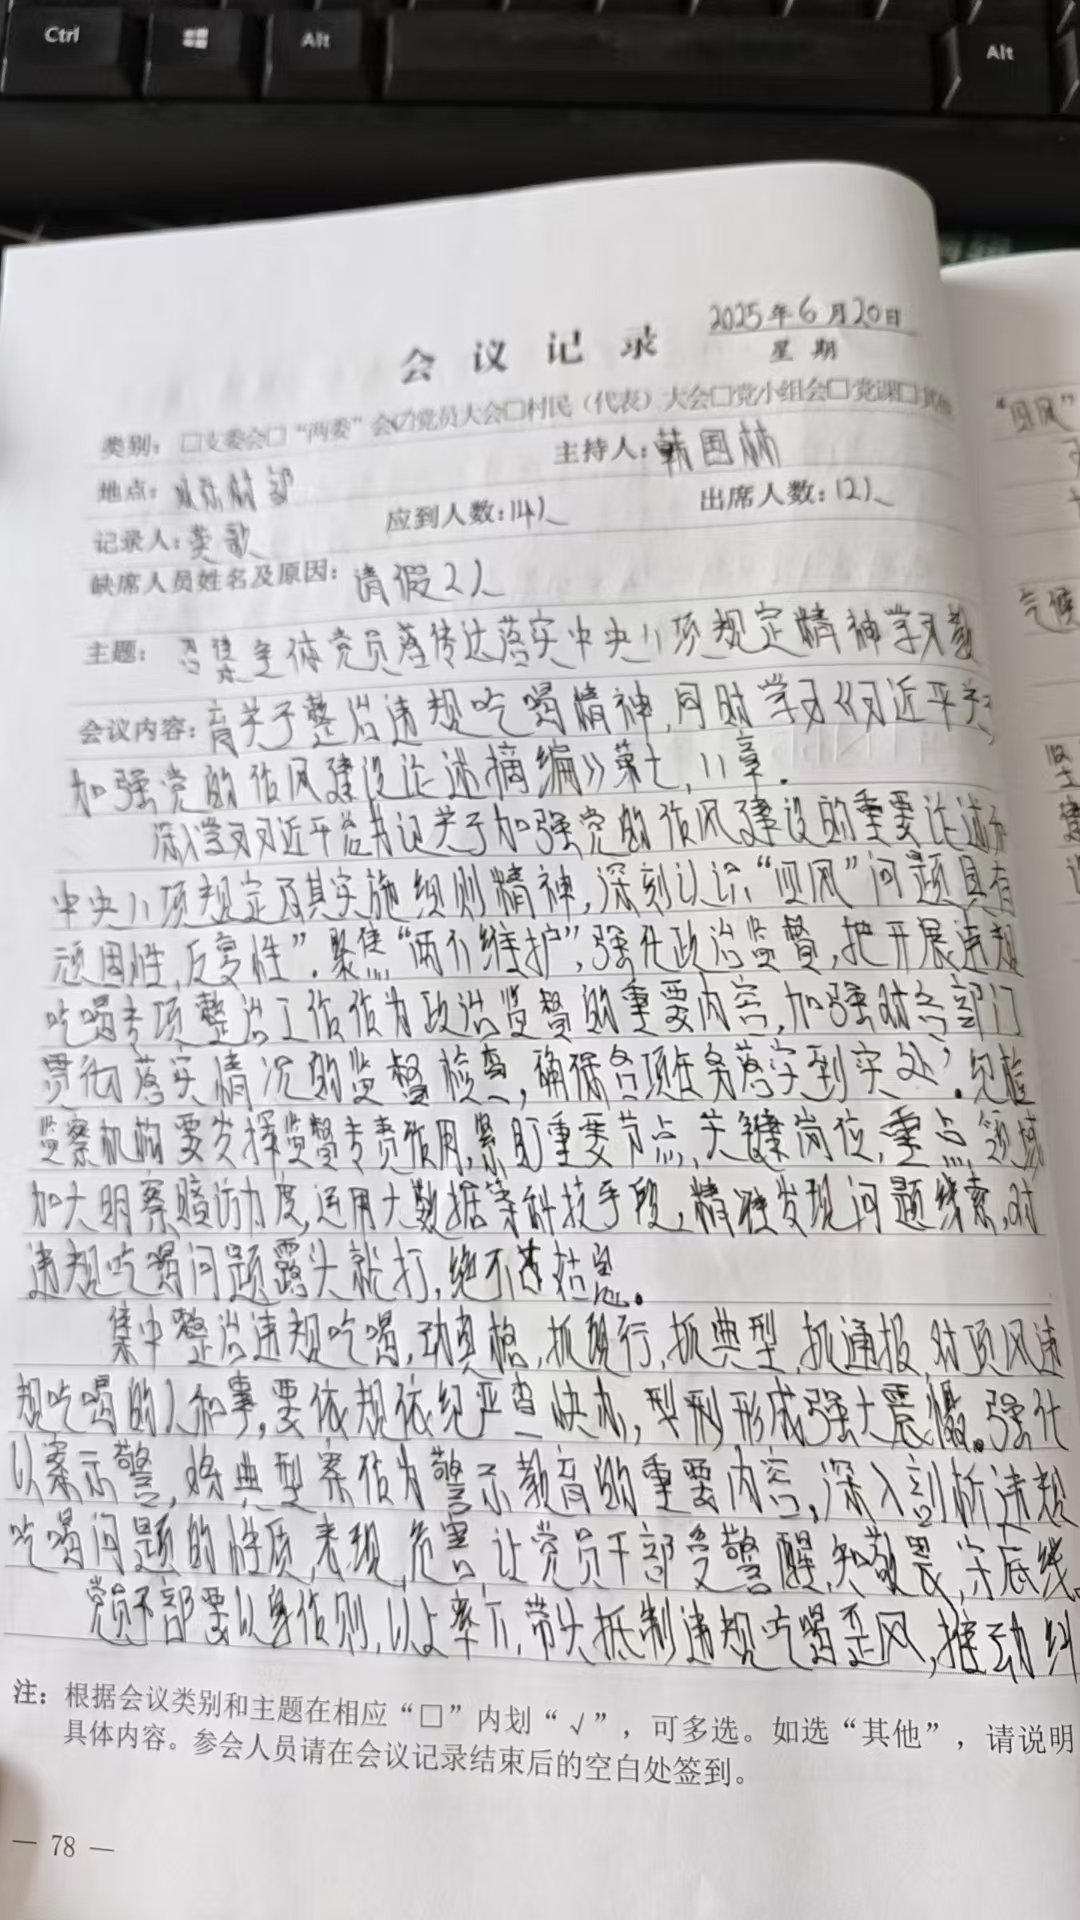 Ctrl
Alt
Alt
2025年6月20日
会议记录
星期
类别：□支委会□“两委”会☑党员大会□村民（代表）大会□党小组会□党课□其他
地点：
主持人：韩国林
记录人：
应到人数：14人
出席人数：12人
缺席人员姓名及原因：请假2人
主题：召集全体党员传达落实中央八项规定精神学习教
会议内容：育关于整治违规吃喝精神，同时学习《习近平关于
加强党的作风建设论述摘编》第七，八章.
深入学习习近平总书记关于加强党的作风建设的重要论述和
中央八项规定及其实施细则精神，深刻认识“四风”问题具有
顽固性，反复性”.聚焦“两个维护”，强化政治监督，把开展违规
吃喝专项整治工作作为政治监督的重要内容，加强对各部门
贯彻落实情况的监督检查，确保各项任务落实到实处’.纪检
监察机构要发挥监督专责作用，紧盯重要节点，关键岗位，重点领域
加大明察暗访力度，运用大数据等科技手段，精准发现问题线索，对
违规吃喝问题露头就打，绝不姑息。
集中整治违规吃喝，动真格，抓现行，抓典型，抓通报，对顶风违
规吃喝的人和事，要依规依纪严查快办，形成强大震慑。强化
以案示警，将典型案作为警示教育的重要内容，深入剖析违规
吃喝问题的性质，表现，危害，让党员干部受警醒，知敬畏，守底线。
党员干部要以身作则，以上率下，带头抵制违规吃喝歪风，推动纠
注：根据会议类别和主题在相应“□”内划“√”，可多选。如选“其他”，请说明
具体内容。参会人员请在会议记录结束后的空白处签到。
— 78 —
“四风”
气候